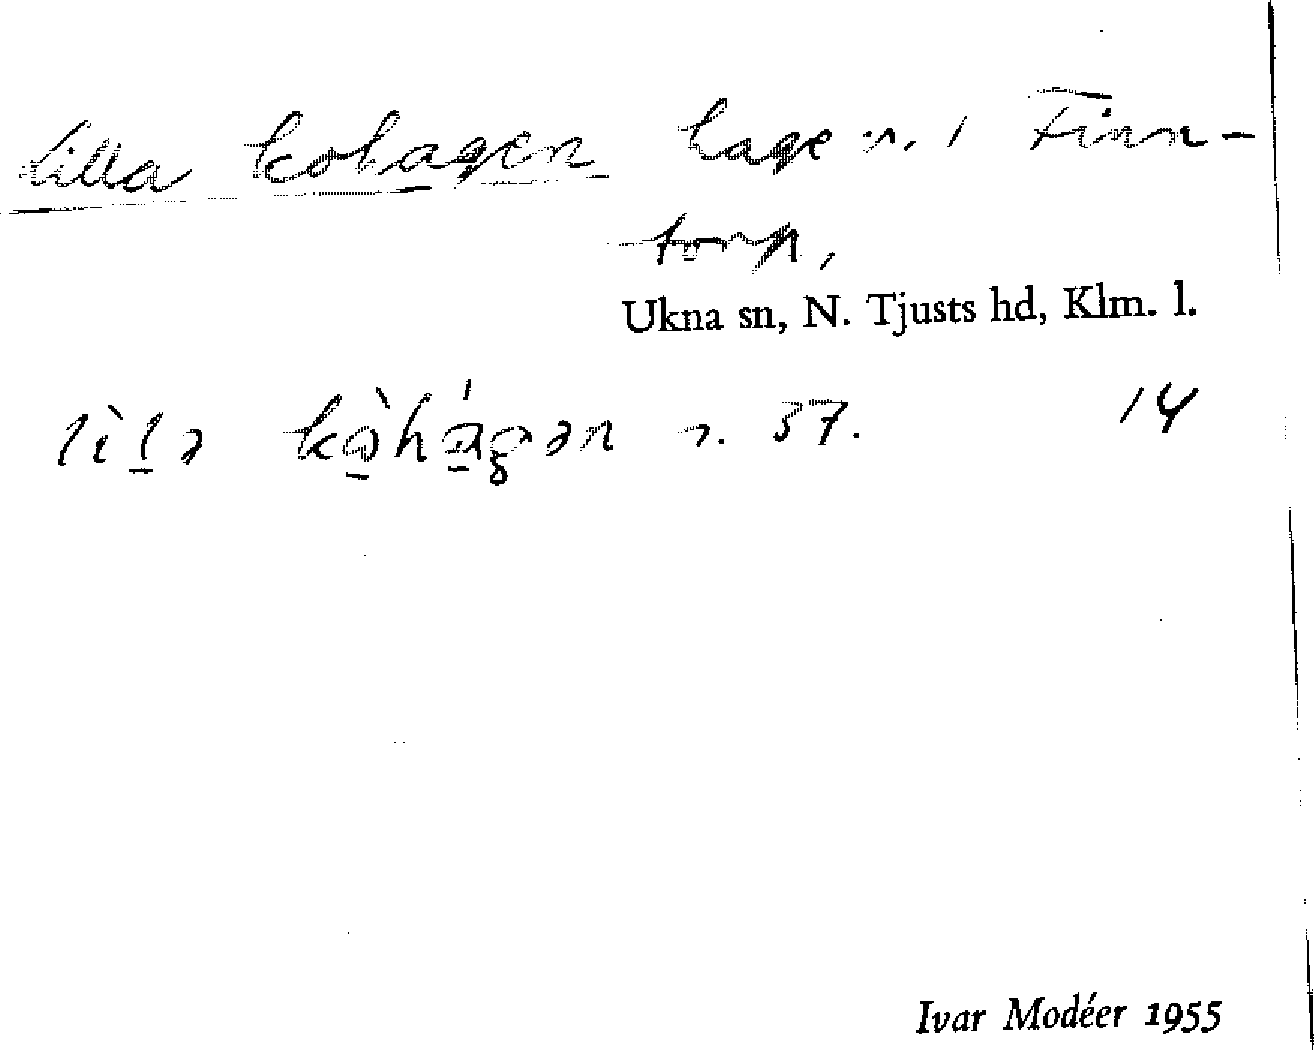 Lilla kohagen hage n. i Finn-
torp,
Ukna sn, N. Tjusts hd, Klm. l.
n. 37. 14
Ivar Modéer 1955